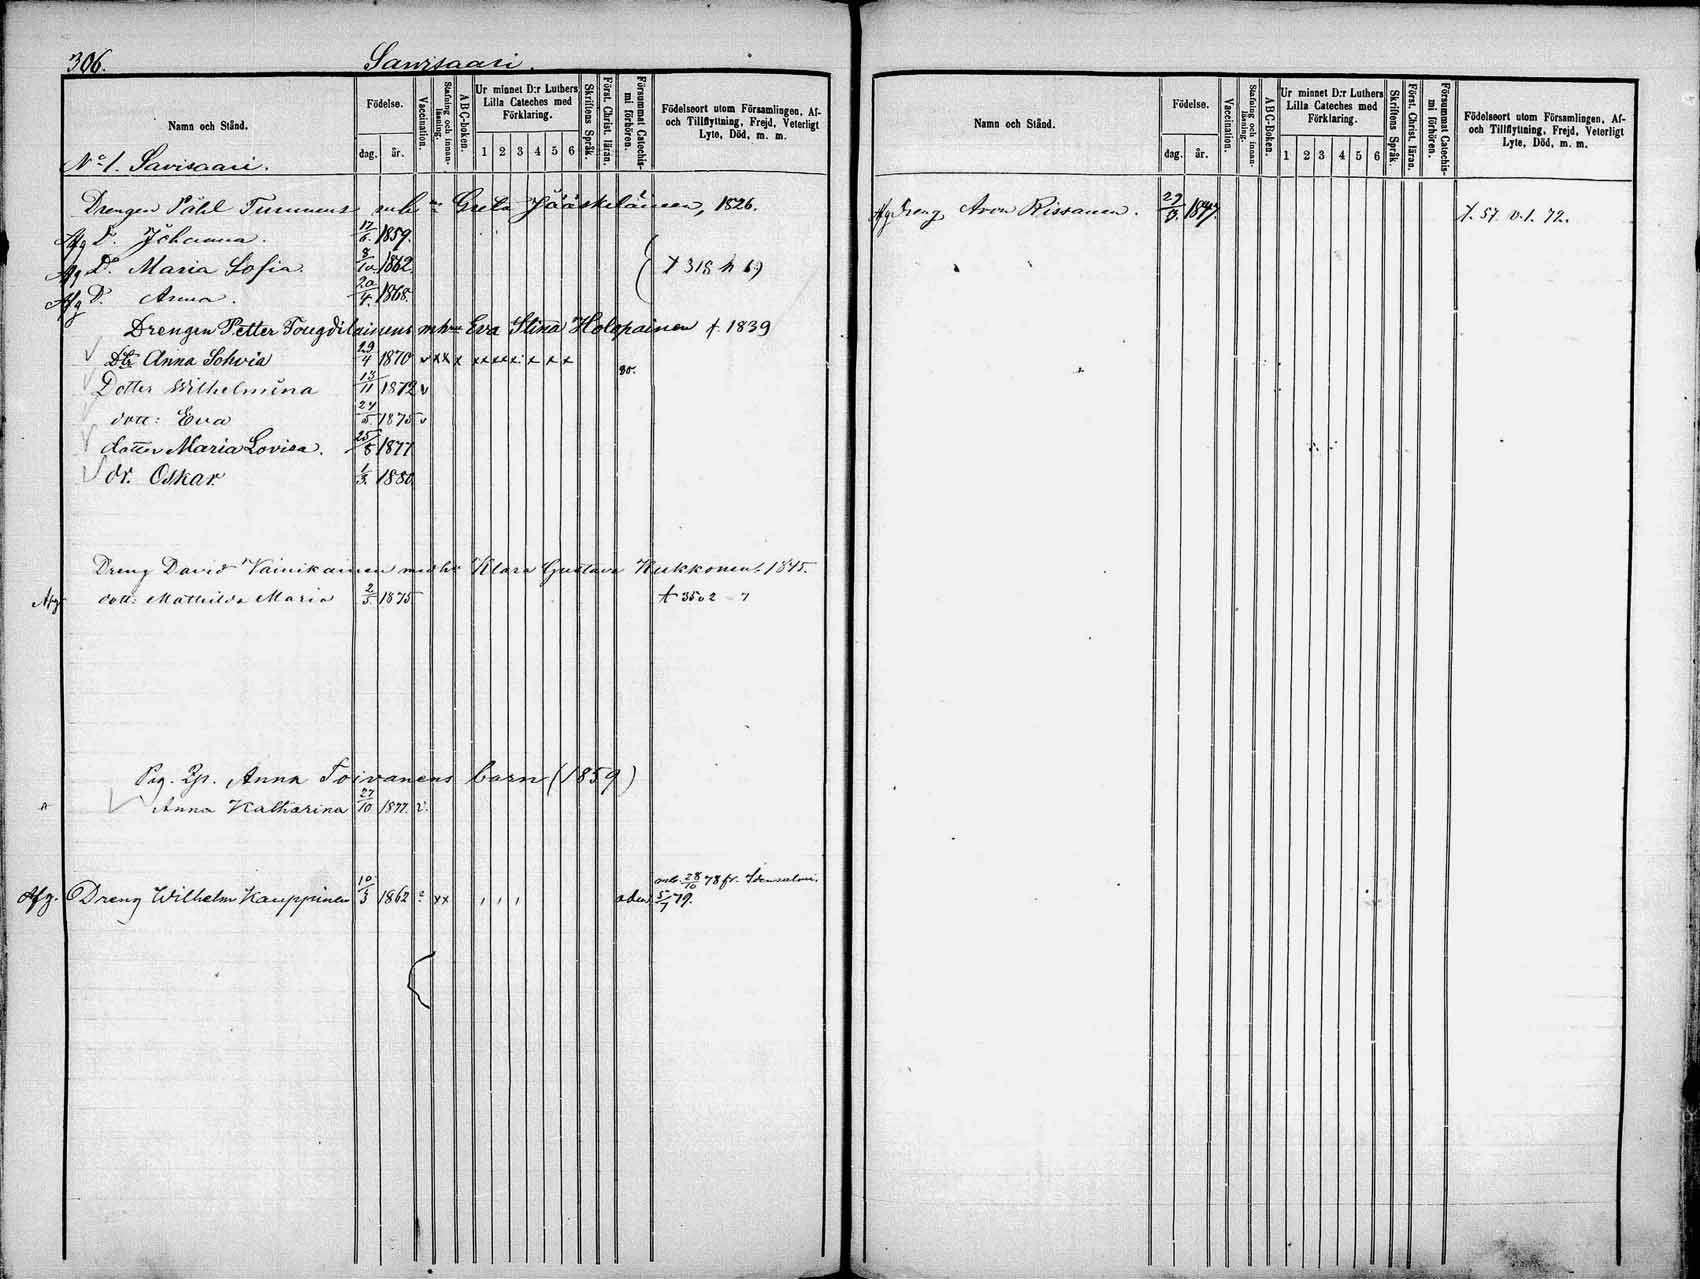 306.
Saursaari.
Namn och Stånd.
Födelse.
dag.
år.
Vaccination.
Stafning och innan-läsning.
ABC-boken.
Ur minnet D:r Luthers Lilla Cateches med Förklaring.
1 2 3 4 5 6
Skriftens Språk.
Först. Christ. läran.
Försummat Catechis-mi förhören.
Födelseort utom Församlingen, Af- och Tillflyttning, Frejd, Veterligt Lyte, Död, m. m.
No 1. Savisaari.
Drengen Påhl Turunens Greta Jääskeläinen, 1826.
Afg D. Johanna. 1859.
Afg D. Maria Sofia. 8/10 1862.
Afg D. Anna. 20/4. 1868.
Drengen Petter Tougdilainens m hru Eva Stina Holopainen f. 1839
Dtr Anna Sohvia 29/4 1870 v xx x xx xx x x x x 80.
Dotter Wilhelmina 13/11 1872 v
dott: Eva 24/5. 1875 v
dotter Maria Lovisa. 25/8 1877
dr. Oskar. 1/3. 1880
Dreng David Vainikainen med hu Klara Gustava Kukkonen f. 1845.
Afg dott: Mathilda Maria 2/5 1875
Pig. Anna Toivanens barn (1859)
Anna Katharina 27/10 1877. v.
Afg. Dreng Wilhelm Kauppinen 10/3 1862 xx 28/10 78 fr. Idensalmi. 5/7 79.
Namn och Stånd.
Födelse.
dag.
år.
Vaccination.
Stafning och innan-läsning.
ABC-Boken.
Ur minnet D:r Luthers Lilla Cateches med Förklaring.
1 2 3 4 5 6
Skriftens Språk.
Först. Christ. läran.
Försummat Catechis-mi förhören.
Födelseort utom Församlingen, Af- och Tillflyttning, Frejd, Veterligt Lyte, Död, m. m.
Afg Dreng Aron Rissanen. 1847 57 v. 1. 72.